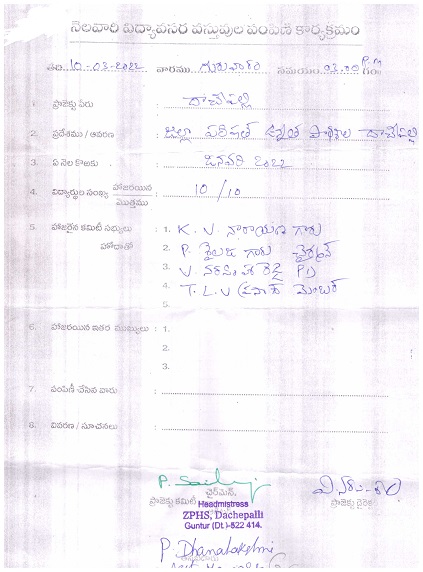 నెలవారి విద్యావసర వస్తువుల పంపిణీ కార్యక్రమం
తేది 10-03-2022 వారము గురువారం సమయం 03.00 P.M గం
1. ప్రాజెక్టు పేరు : దాచేపల్లి
2. ప్రదేశము / ఆవరణ : జిల్లా పరిషత్ ఉన్నత పాఠశాల దాచేపల్లి
3. ఏ నెల కొఱకు : జనవరి 2022
4. విద్యార్థుల సంఖ్య హాజరయిన / మొత్తము : 10/10
5. హాజరైన కమిటీ సభ్యులు : 1. K. V. నారాయణ గారు
హోదాతో 2. P. శైలజ గారు ఛైర్మన్
3. V. నరసింహా రెడ్డి PD
4. T. L. V ప్రకాశ్ మెంబర్
5.
6. హాజరయిన ఇతర ముఖ్యులు : 1.
2.
3.
7. పంపిణీ చేసిన వారు :
8. వివరణ / సూచనలు :
P. Sailaja
ఛైర్మెన్,
ప్రాజెక్టు కమిటీ
ప్రాజెక్టు డైరెక్ట
Headmistress
ZPHS, Dachepalli
Guntur (Dt.)-522 414.
P. Dhanalakshmi